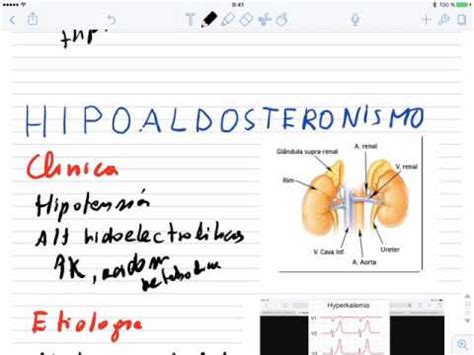 9:41
100 %
HIPOALDOSTERONISMO
Clínica
Hipotensión
Alt hidroelectrolíticas
↑K, acidosis
metabólica
Glândula supra-renal
A. renal
V. renal
Rim
V. Cava Inf.
A. Aorta
Ureter
Hyperkalemia
V1
V2
V3
Etiología